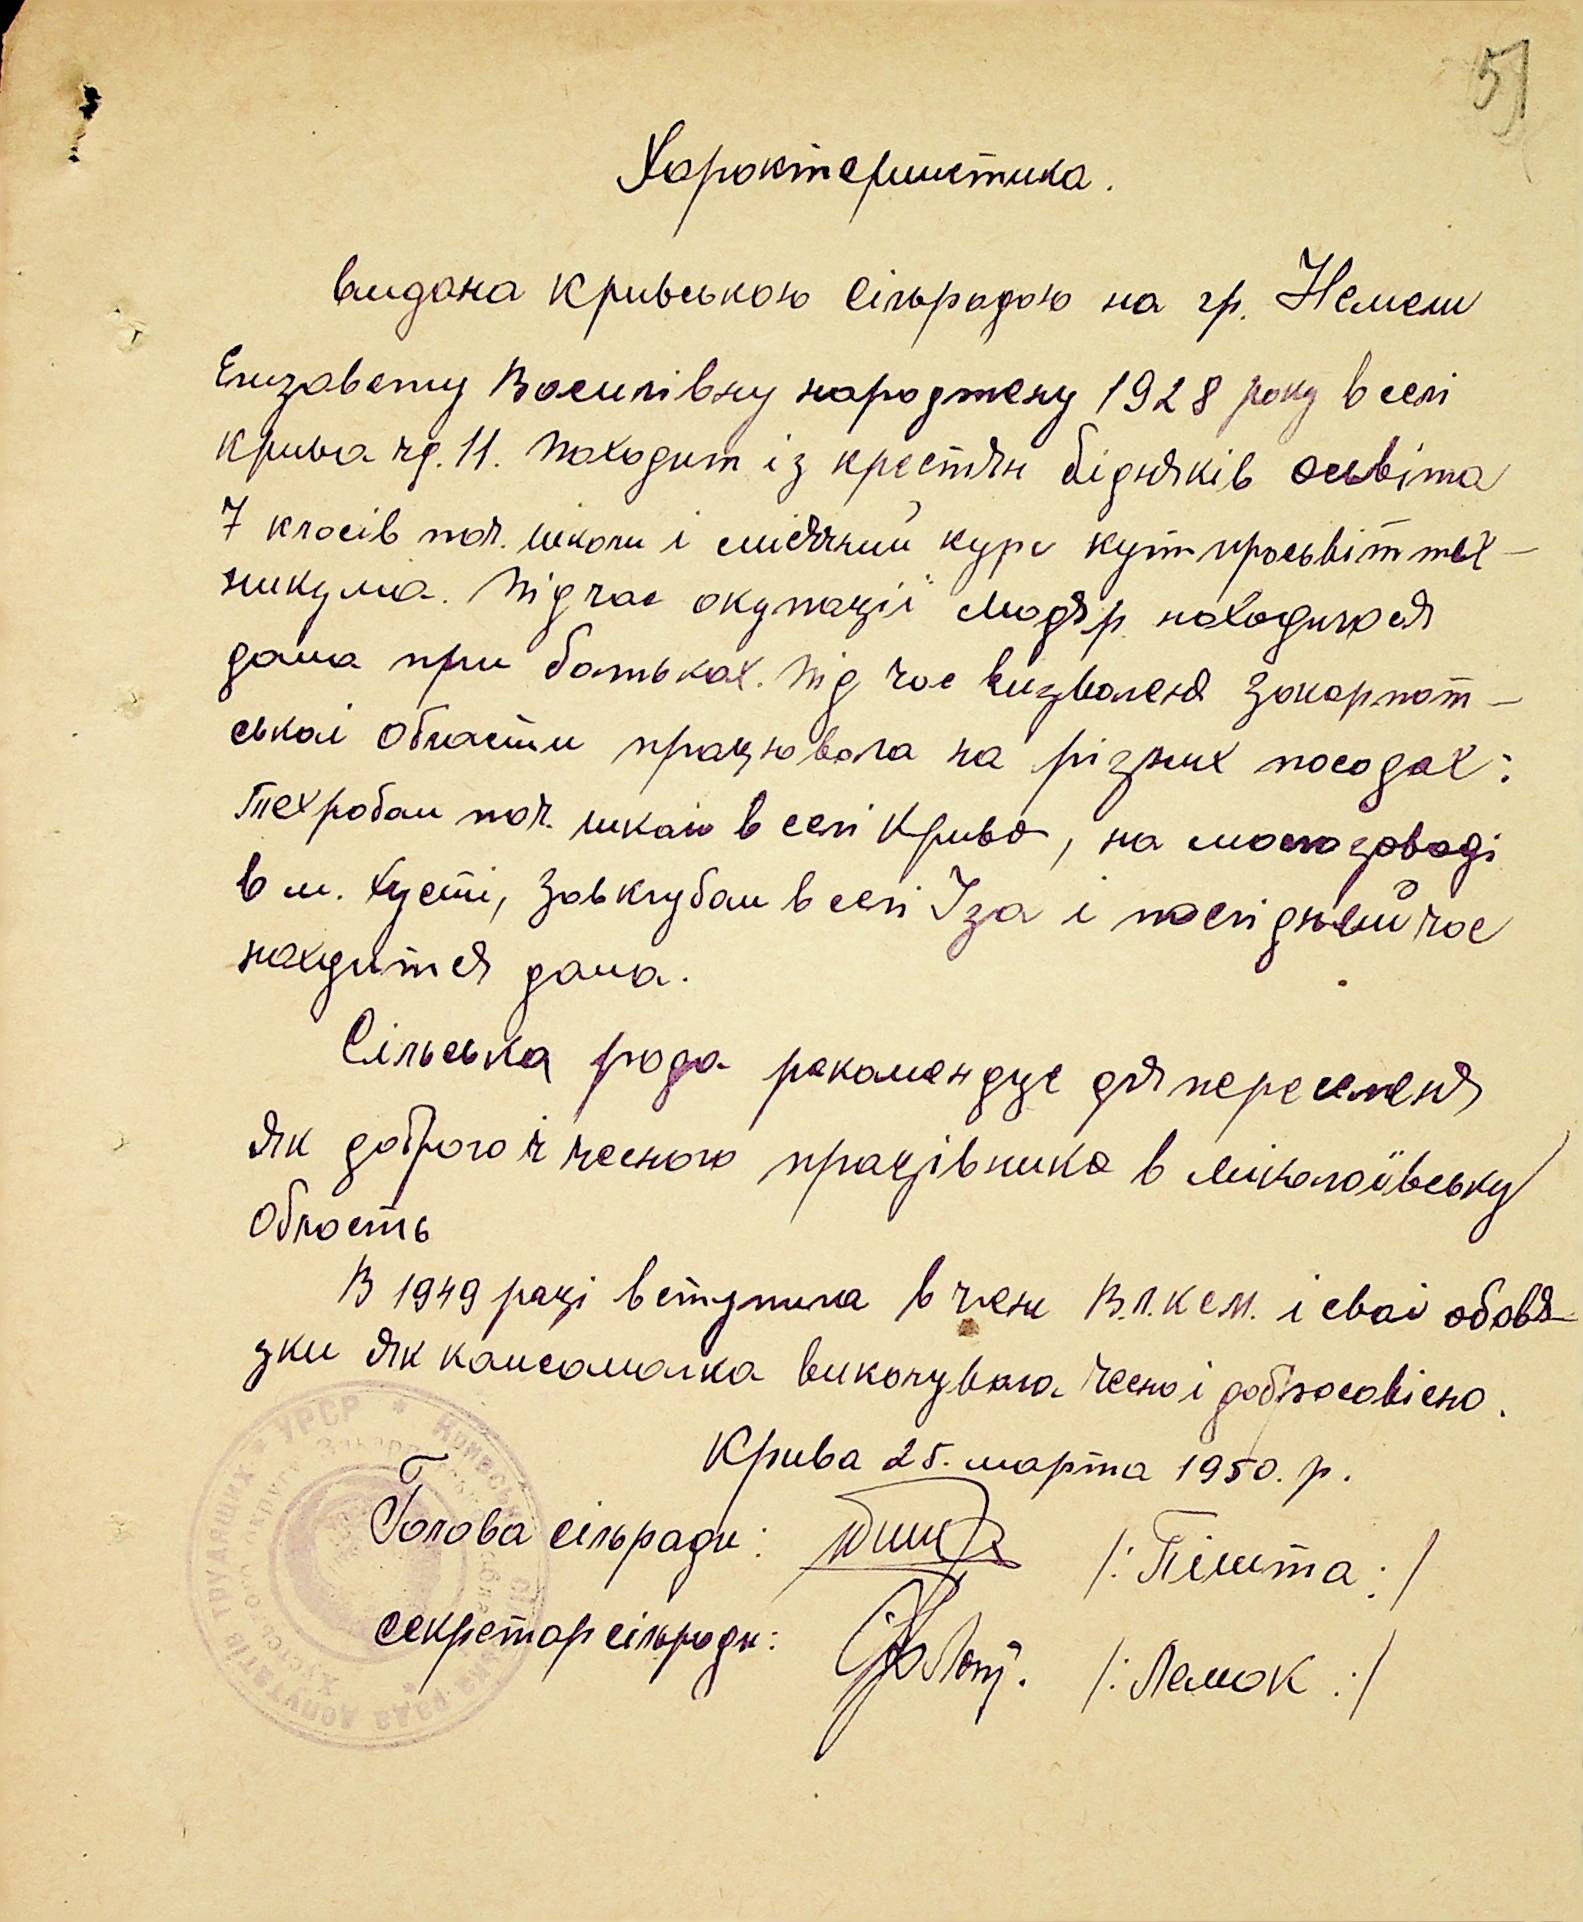 51
Характеристика.
видана Кривською сільрадою на гр. Немеш
Елизавету Василівну народжену 1928 року в селі
Крива чд. 11. Походит із крестян бідняків освіта
7 класів поч. школи і місячний курс культпросвіт тех-
никума. Під час окупації мадяр находилася
дома при батьках. Під час визволеня Закарпат-
ської области працювала на різних посадах:
Техробом поч. школи в селі Крива, на маслозаводі
в м. Хусті, завклубом в селі Іза і послідний час
находится дома.
Сільська рада рекомендує для переселеня
як доброго і чесного працівника в Міколаївську
область
В 1949 році вступила в члени В.Л.КСМ. і свої обовя-
зки як комсомолка виконувала чесно і добросовісно.
Крива 25. марта 1950. р.
Голова сільради: /: Пішта :/
секретар сільради: /: Лемок :/
УРСР * сільська рада депутатів трудящих *